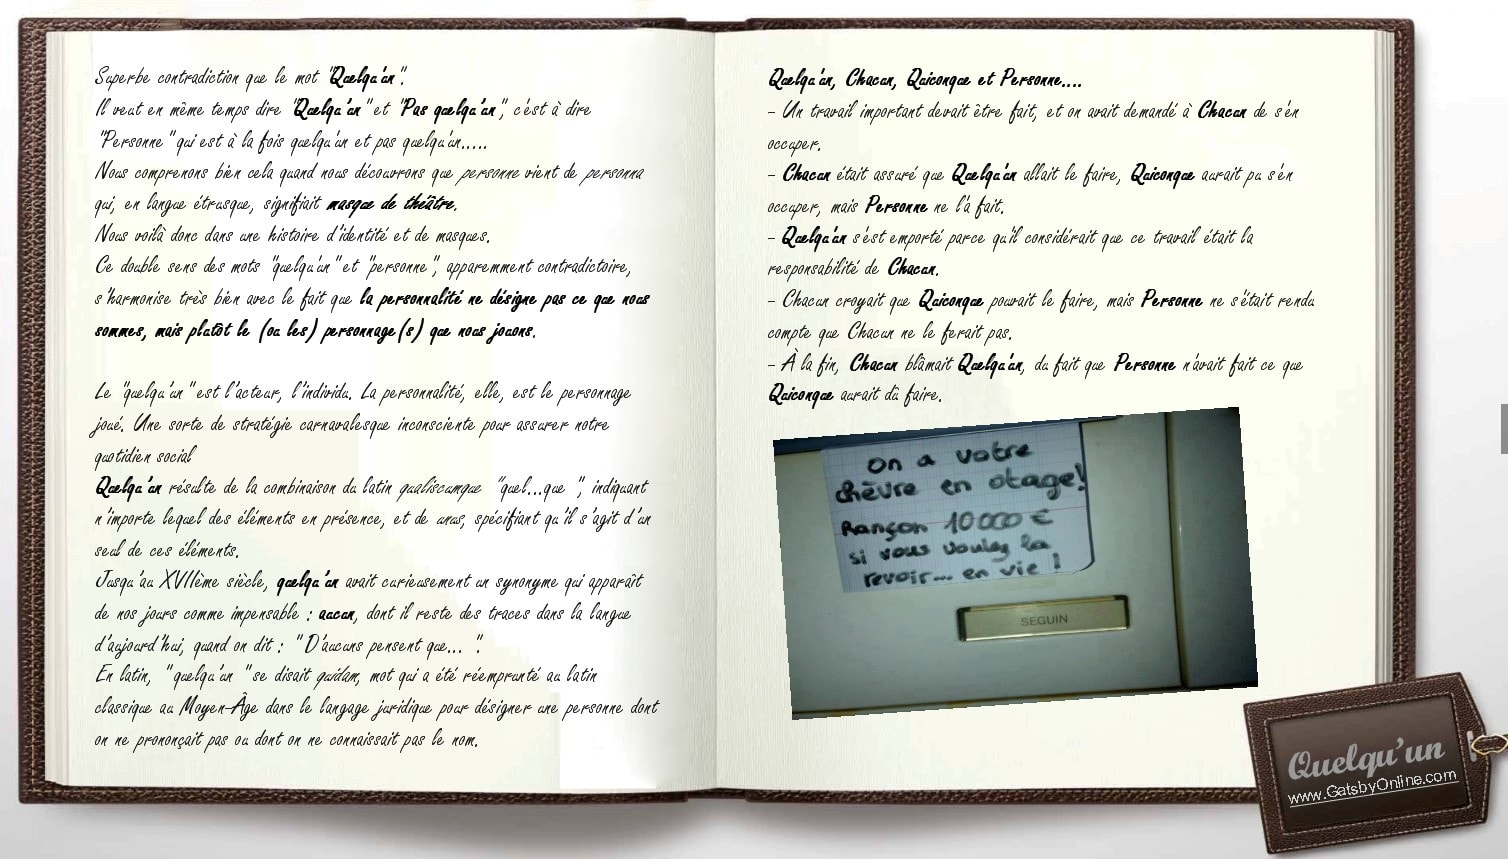 Superbe contradiction que le mot "Quelqu'un".
Il veut en même temps dire "Quelqu'un" et "Pas quelqu'un", c'est à dire
"Personne" qui est à la fois quelqu'un et pas quelqu'un.....
Nous comprenons bien cela quand nous découvrons que personne vient de persona
qui, en langue étrusque, signifiait masque de théâtre.
Nous voilà donc dans une histoire d'identité et de masques.
Ce double sens des mots "quelqu'un" et "personne", apparemment contradictoire,
s'harmonise très bien avec le fait que la personnalité ne désigne pas ce que nous
sommes, mais plutôt le (ou les) personnage(s) que nous jouons.
Le "quelqu'un" est l'acteur, l'individu. La personnalité, elle, est le personnage
joué. Une sorte de stratégie carnavalesque inconsciente pour assurer notre
quotidien social
Quelqu'un résulte de la combinaison du latin qualiscumque "quel...que ", indiquant
n'importe lequel des éléments en présence, et de unus, spécifiant qu'il s'agit d'un
seul de ces éléments.
Jusqu'au XVIIème siècle, quelqu'un avait curieusement un synonyme qui apparaît
de nos jours comme impensable : aucun, dont il reste des traces dans la langue
d'aujourd'hui, quand on dit : " D'aucuns pensent que... ".
En latin, " quelqu'un " se disait quidam, mot qui a été réemprunté au latin
classique au Moyen-Âge dans le langage juridique pour désigner une personne dont
on ne prononçait pas ou dont on ne connaissait pas le nom.
Quelqu'un, Chacun, Quiconque et Personne....
- Un travail important devait être fait, et on avait demandé à Chacun de s'en
occuper.
- Chacun était assuré que Quelqu'un allait le faire, Quiconque aurait pu s'en
occuper, mais Personne ne l'a fait.
- Quelqu'un s'est emporté parce qu'il considérait que ce travail était la
responsabilité de Chacun.
- Chacun croyait que Quiconque pouvait le faire, mais Personne ne s'était rendu
compte que Chacun ne le ferait pas.
- À la fin, Chacun blâmait Quelqu'un, du fait que Personne n'avait fait ce que
Quiconque aurait dû faire.
on a votre
chèvre en otage!
Rançon 10000 €
si vous voulez la
revoir... en vie !
SEGUIN
Quelqu'un !
www.GatsbyOnline.com